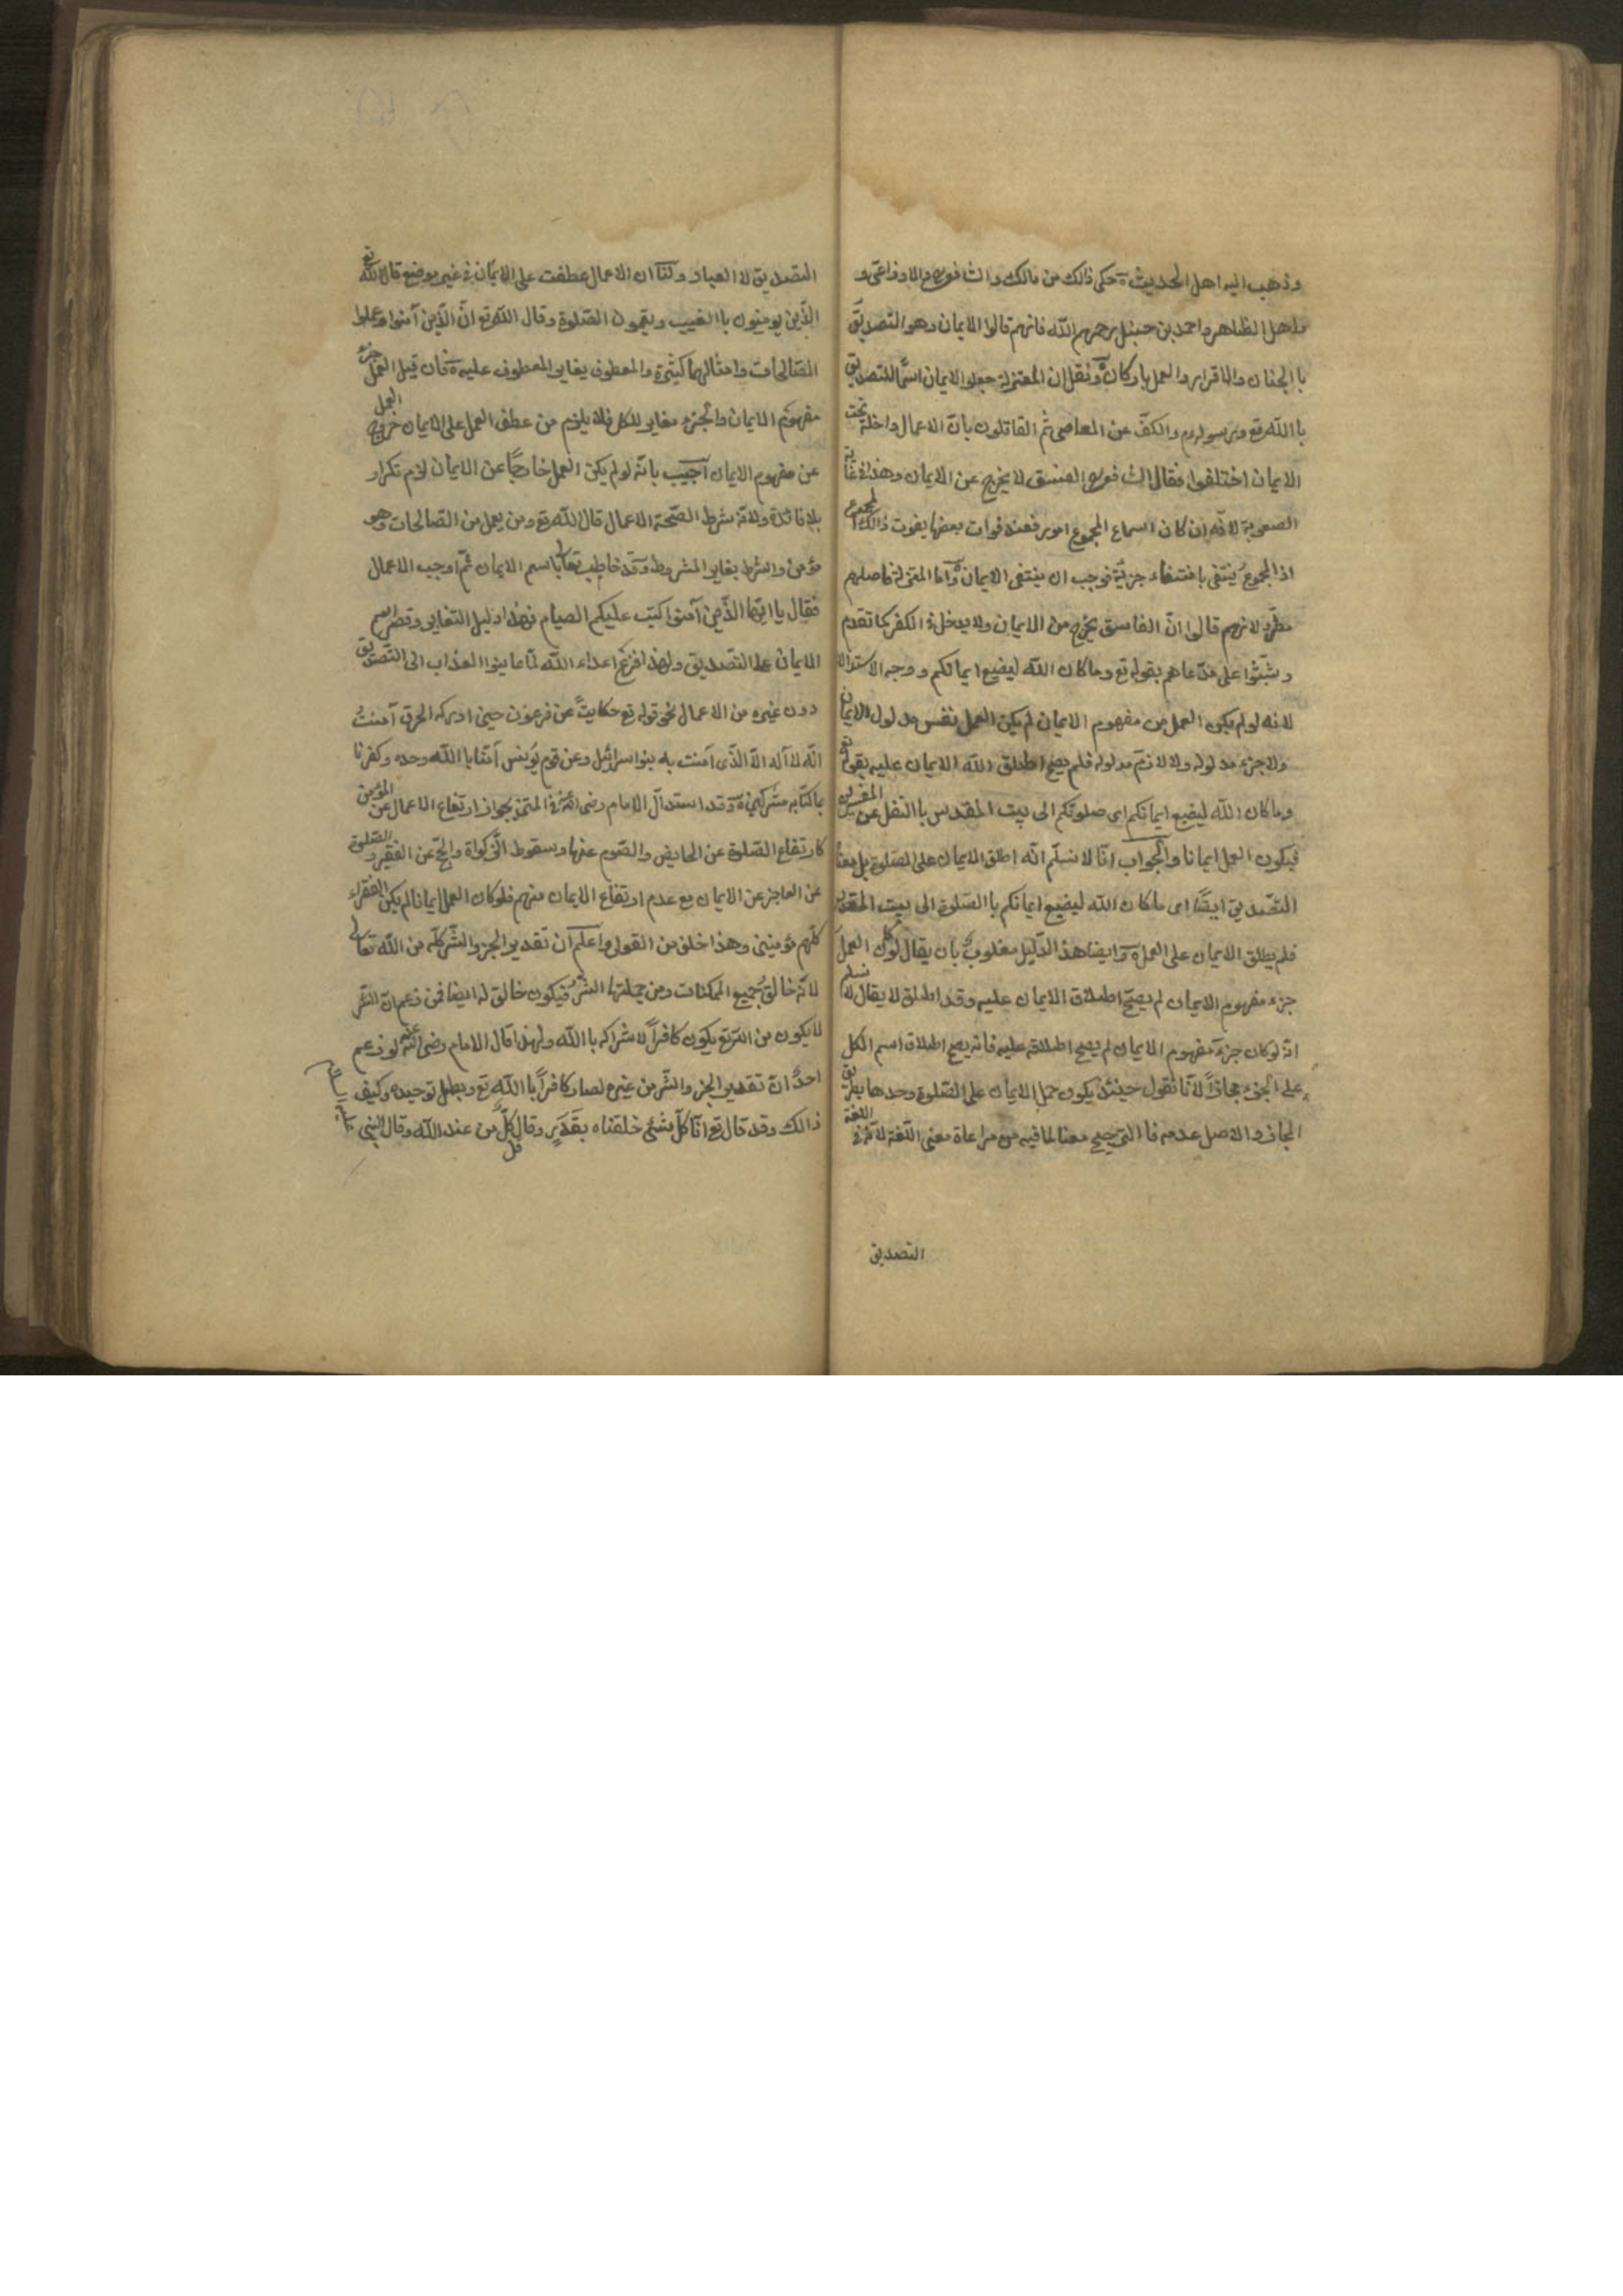 وذهب اليه اهل الحديث حكى ذالك من مالك والشافعي والاوزاعي و
واهل الظاهر واحمد بن حنبل رحمهم الله فانهم قالوا الايمان وهو التصديق
با الجنان والاقرار والعمل باركان ونقل ان المعتزلة جعلوا الايمان اسمًا للتصديق
با الله تع وبرسوله وم والكفّ عن المعاصى ثم القائلون بانّ الاعمال داخلة تحت
الايمان اختلفوا فقال الشافعي الفسق لا يخرج عن الايمان وهذا في غاية
الصعوبة لانّه ان كان اسما ع المجموع امور فعند فوات بعضها يفوت ذالك المجموع
اذ المجموع ينتفى بانتفاء جزئه فوجب ان ينتفى الايمان وامّا المعتزلة فاصلهم
مطّرد لانهم قالوا انّ الفاسق يخرج من الايمان ولا يدخل في الكفر كما تقدم
وتشبّثوا على مدّعاهم بقوله تع وما كان الله ليضيع ايمانكم ووجه الاستدلال
لانه لو لم يكن العمل من مفهوم الايمان لم يكن العمل نفس مدلول الايمان
ولا جزء مدلوله ولا لازم مدلوله فلم يصح اطلاق الله الايمان عليه بقوله تع
وما كان الله ليضيع ايمانكم اى صلوتكم الى بيت المقدس با النقل عن المفسرين
فيكون العمل ايمانا والجواب انّا لا نسلّم انّه اطلق الايمان على الصلوة بل معناه
التصديق ايضًا اى ما كان الله ليضيع ايمانكم با الصلوة الى بيت المقدس
فلم يطلق الايمان على العمل وايضا هذا الدّليل مقلوب بان يقال لو كان العمل
جزء مفهوم الايمان لم يصحّ اطلاق الايمان عليه وقد اطلق لا يقال لا نسلم
انه لو كان جزء مفهوم الايمان لم يصح اطلاقه عليه فانه يصح اطلاق اسم الكل
على الجزء مجازاً لانّا نقول حينئذ يكون حمل الايمان على الصّلوة وحدها بطريق
المجاز والاصل عدمه فا الترجيح معنا لما فيه من مراعاة معنى اللغة لانّه في اللغة
التصديق
التصديق لا العباد ولنا ان الاعمال عطفت على الايمان في غير موضع قال الله تع
الّذين يومنون با الغيب ويقيمون الصّلوة وقال الله تع انّ الّذين آمنوا وعملوا
الصّالحات وامثالهما كثيرة والمعطوف يغاير المعطوف عليه فان قيل العمل جزء
مفهوم الايمان والجزء مغاير للكل فلا يلزم من عطف العمل على الايمان خروج العمل
عن مفهوم الايمان اجيب بانّه لو لم يكن العمل خارجًا عن الايمان لزم تكرار
بلا فائدة ولانّه شرط الصّحة الاعمال قال الله تع ومن يعمل من الصّالحات وهو
مؤمن والشرط يغاير المشروط وقد خاطب تعالى باسم الايمان ثمّ اوجب الاعمال
فقال يا ايّها الّذين آمنوا كتب عليكم الصيام فهذا دليل التغاير وقصر اسم
الايمان على التصديق ولهذا فزع اعداء الله لمّا عاينوا العذاب الى التّصديق
دون غيره من الاعمال نحو قوله تع حكايةً عن فرعون حين ادركه الغرق آمنتُ
انّه لا آله الّا الّذى آمنت به بنوا اسرائيل وعن قوم يونس آمنّا با الله وحده وكفرنا
بما كنّا به مشركين وقد استدلّ الامام رضى الله عنه في المتن بجواز ارتفاع الاعمال عن المؤمن
كارتفاع الصّلوة عن الحايض والصّوم عنها وسقوط الزّكواة والحجّ عن الفقير والصّلوة
عن العاجز عن الايمان مع عدم ارتفاع الايمان منهم فلو كان العمل ايمانا لم يكن الفقراء
كلّهم مؤمنين وهذا خلف من القول واعلم ان تقدير الخير والشّر كلّه من الله تعالى
لانّه خالق جميع الممكنات ومن جملتها الشّر فيكون خالق له ايضا فمن زعم انّ الشّر
لا يكون من الله تع يكون كافراً لاشراكه با الله ولهذا قال الامام رضى الله عنه لو زعم
احدٌ انّ تقدير الخير والشّر من غيره لصار كافراً با الله تع وبطل توحيده وكيف
ذالك وقد قال تع انّا كلّ شئ خلقناه بقدَر وقال قل كلّ من عند الله وقال النبى